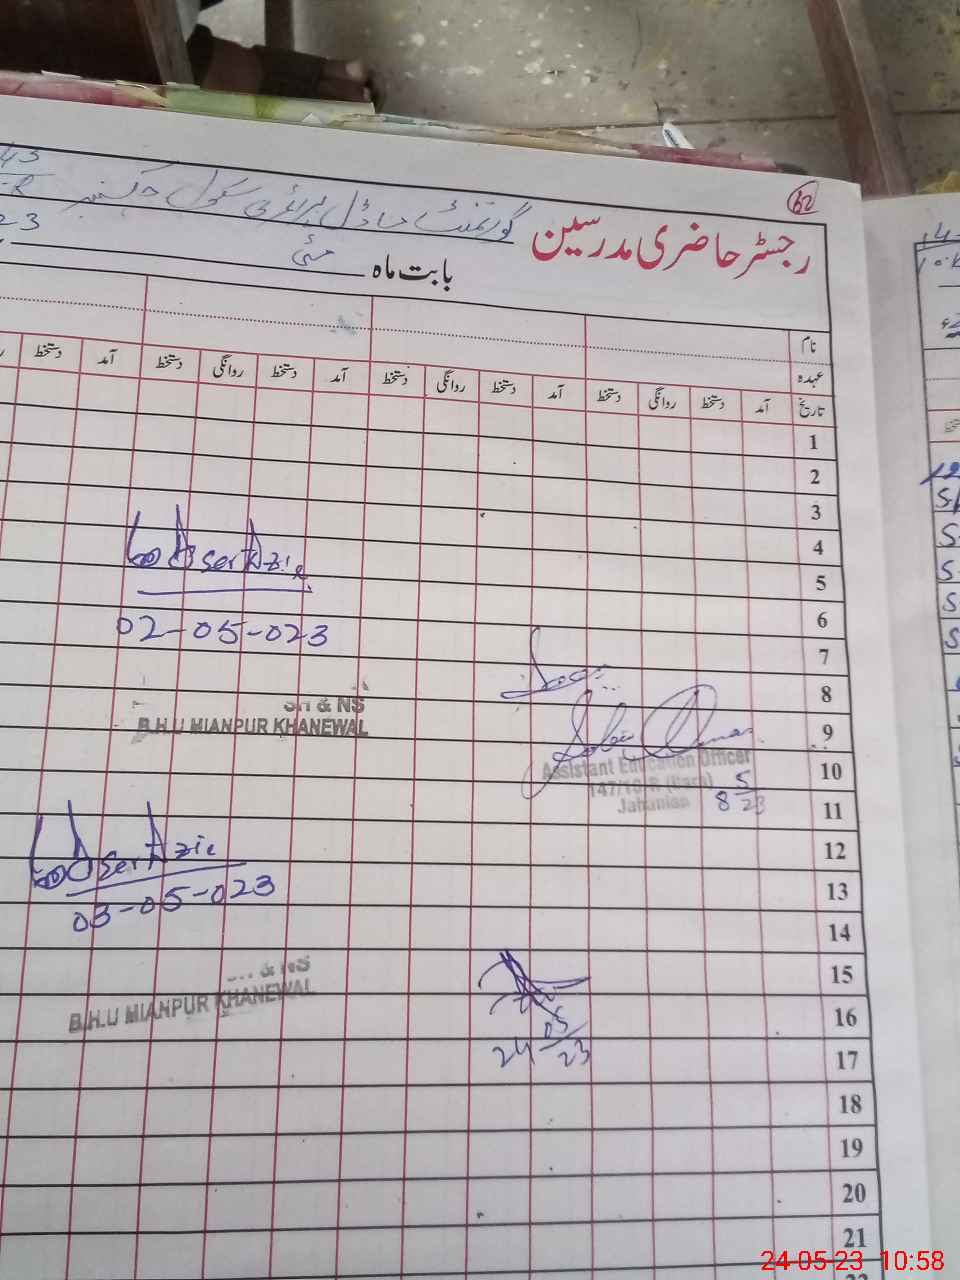 62
رجسٹر حاضری مدرسین گورنمنٹ ماڈل پرائمری سکول چک نمبر
بابت ماہ مئی 23
نام
عہدہ
تاریخ آمد دستخط روانگی دستخط آمد دستخط روانگی دستخط آمد دستخط روانگی دستخط آمد دستخط
1
2
3
4
5
6
02-05-023
7
8
SH & NS
B.H.U MIANPUR KHANEWAL
9
10
Assistant Education Officer
Jahanian
8 5/23
11
12
13
03-05-023
14
15
SH & NS
B.H.U MIANPUR KHANEWAL
16
24 05/23
17
18
19
20
21
24-05-23 10:58